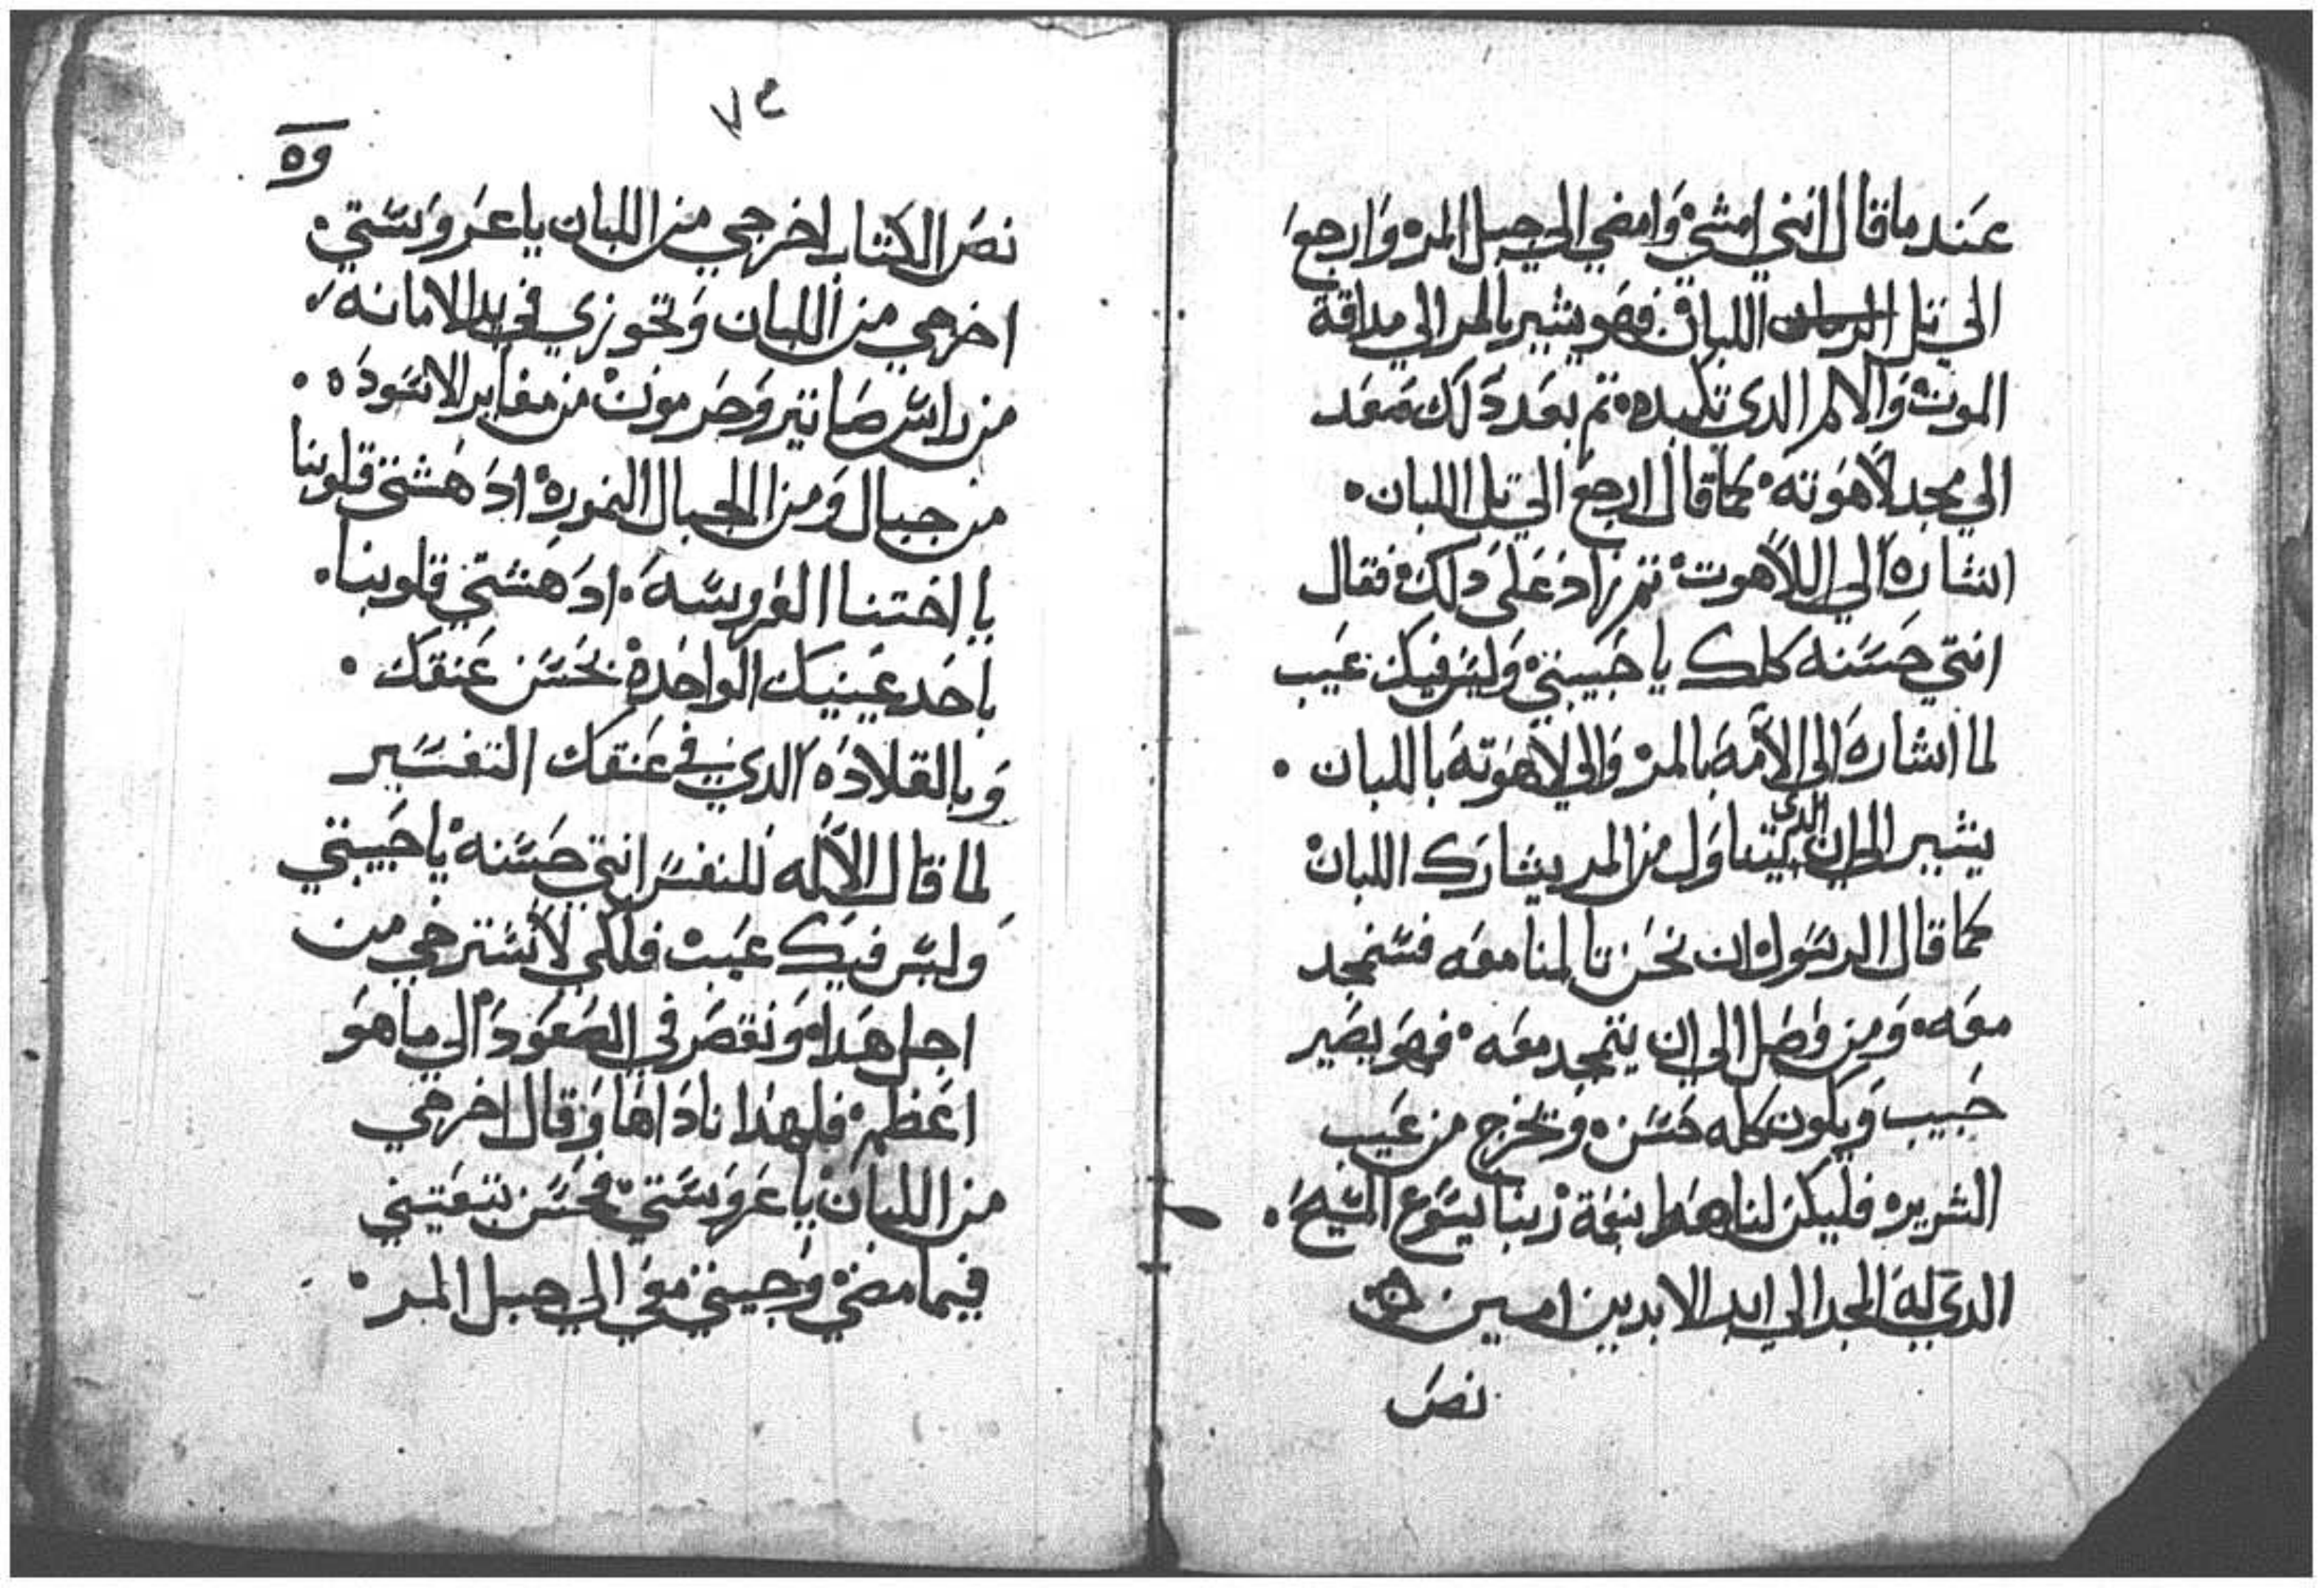 عند ما قال انني امشي وامضي الي جبل المره وارجع
الي تل اللبان فهو يشير بالمر الي مداقة
الموت والالم الدي تكبده تم بعد دلك صعد
الي مجد لاهوته كما قال ارجع الي تل اللبان
اشاره الي اللاهوت تم زاد علي دلك فقال
انتي حسنه كلك يا حبيبتي وليس فيك عيب
لما اشاره الي الامه بالمر والي لاهوته باللبان
يشير الي ان الدي يتناول من المر يشارك اللبان
كما قال الرسول ان نحن تالمنا معه فسنمجد
معه ومن وصل الي ان يتمجد معه فهو يصير
حبيب ويكون كله حسن وتخرج من عيب
الشريره فليكن لنا هدا بنعمة ربنا يسوع المسيح
الدي له المجد الي ابد الابدين امين
نص
٧٤
وه
نص الكتاب اخرجي من اللبان يا عروستي
اخرجي من اللبان وتجوزي في بدا الامانه
من راس صانير وحرمون من مغاير الاسوده
من جبال ومن الجبال النموره ادهشتي قلوبنا
يا اختنا العروسه ادهشتي قلوبنا
باحد عينيك الواحده بحسن عنقك
وبالقلاده الدي في عنقك التفسير
لما قال الاله للنفس انتي حسنه يا حبيبتي
وليس فيك عيب فلكي لا تسترخي من
اجل هدا وتقصر في الصعود الي ما هو
اعظم فلهدا ناداها وقال اخرجي
من اللبان يا عروستي فحسن تبعتيني
فيما مضي وجيتي معي الي جبل المر